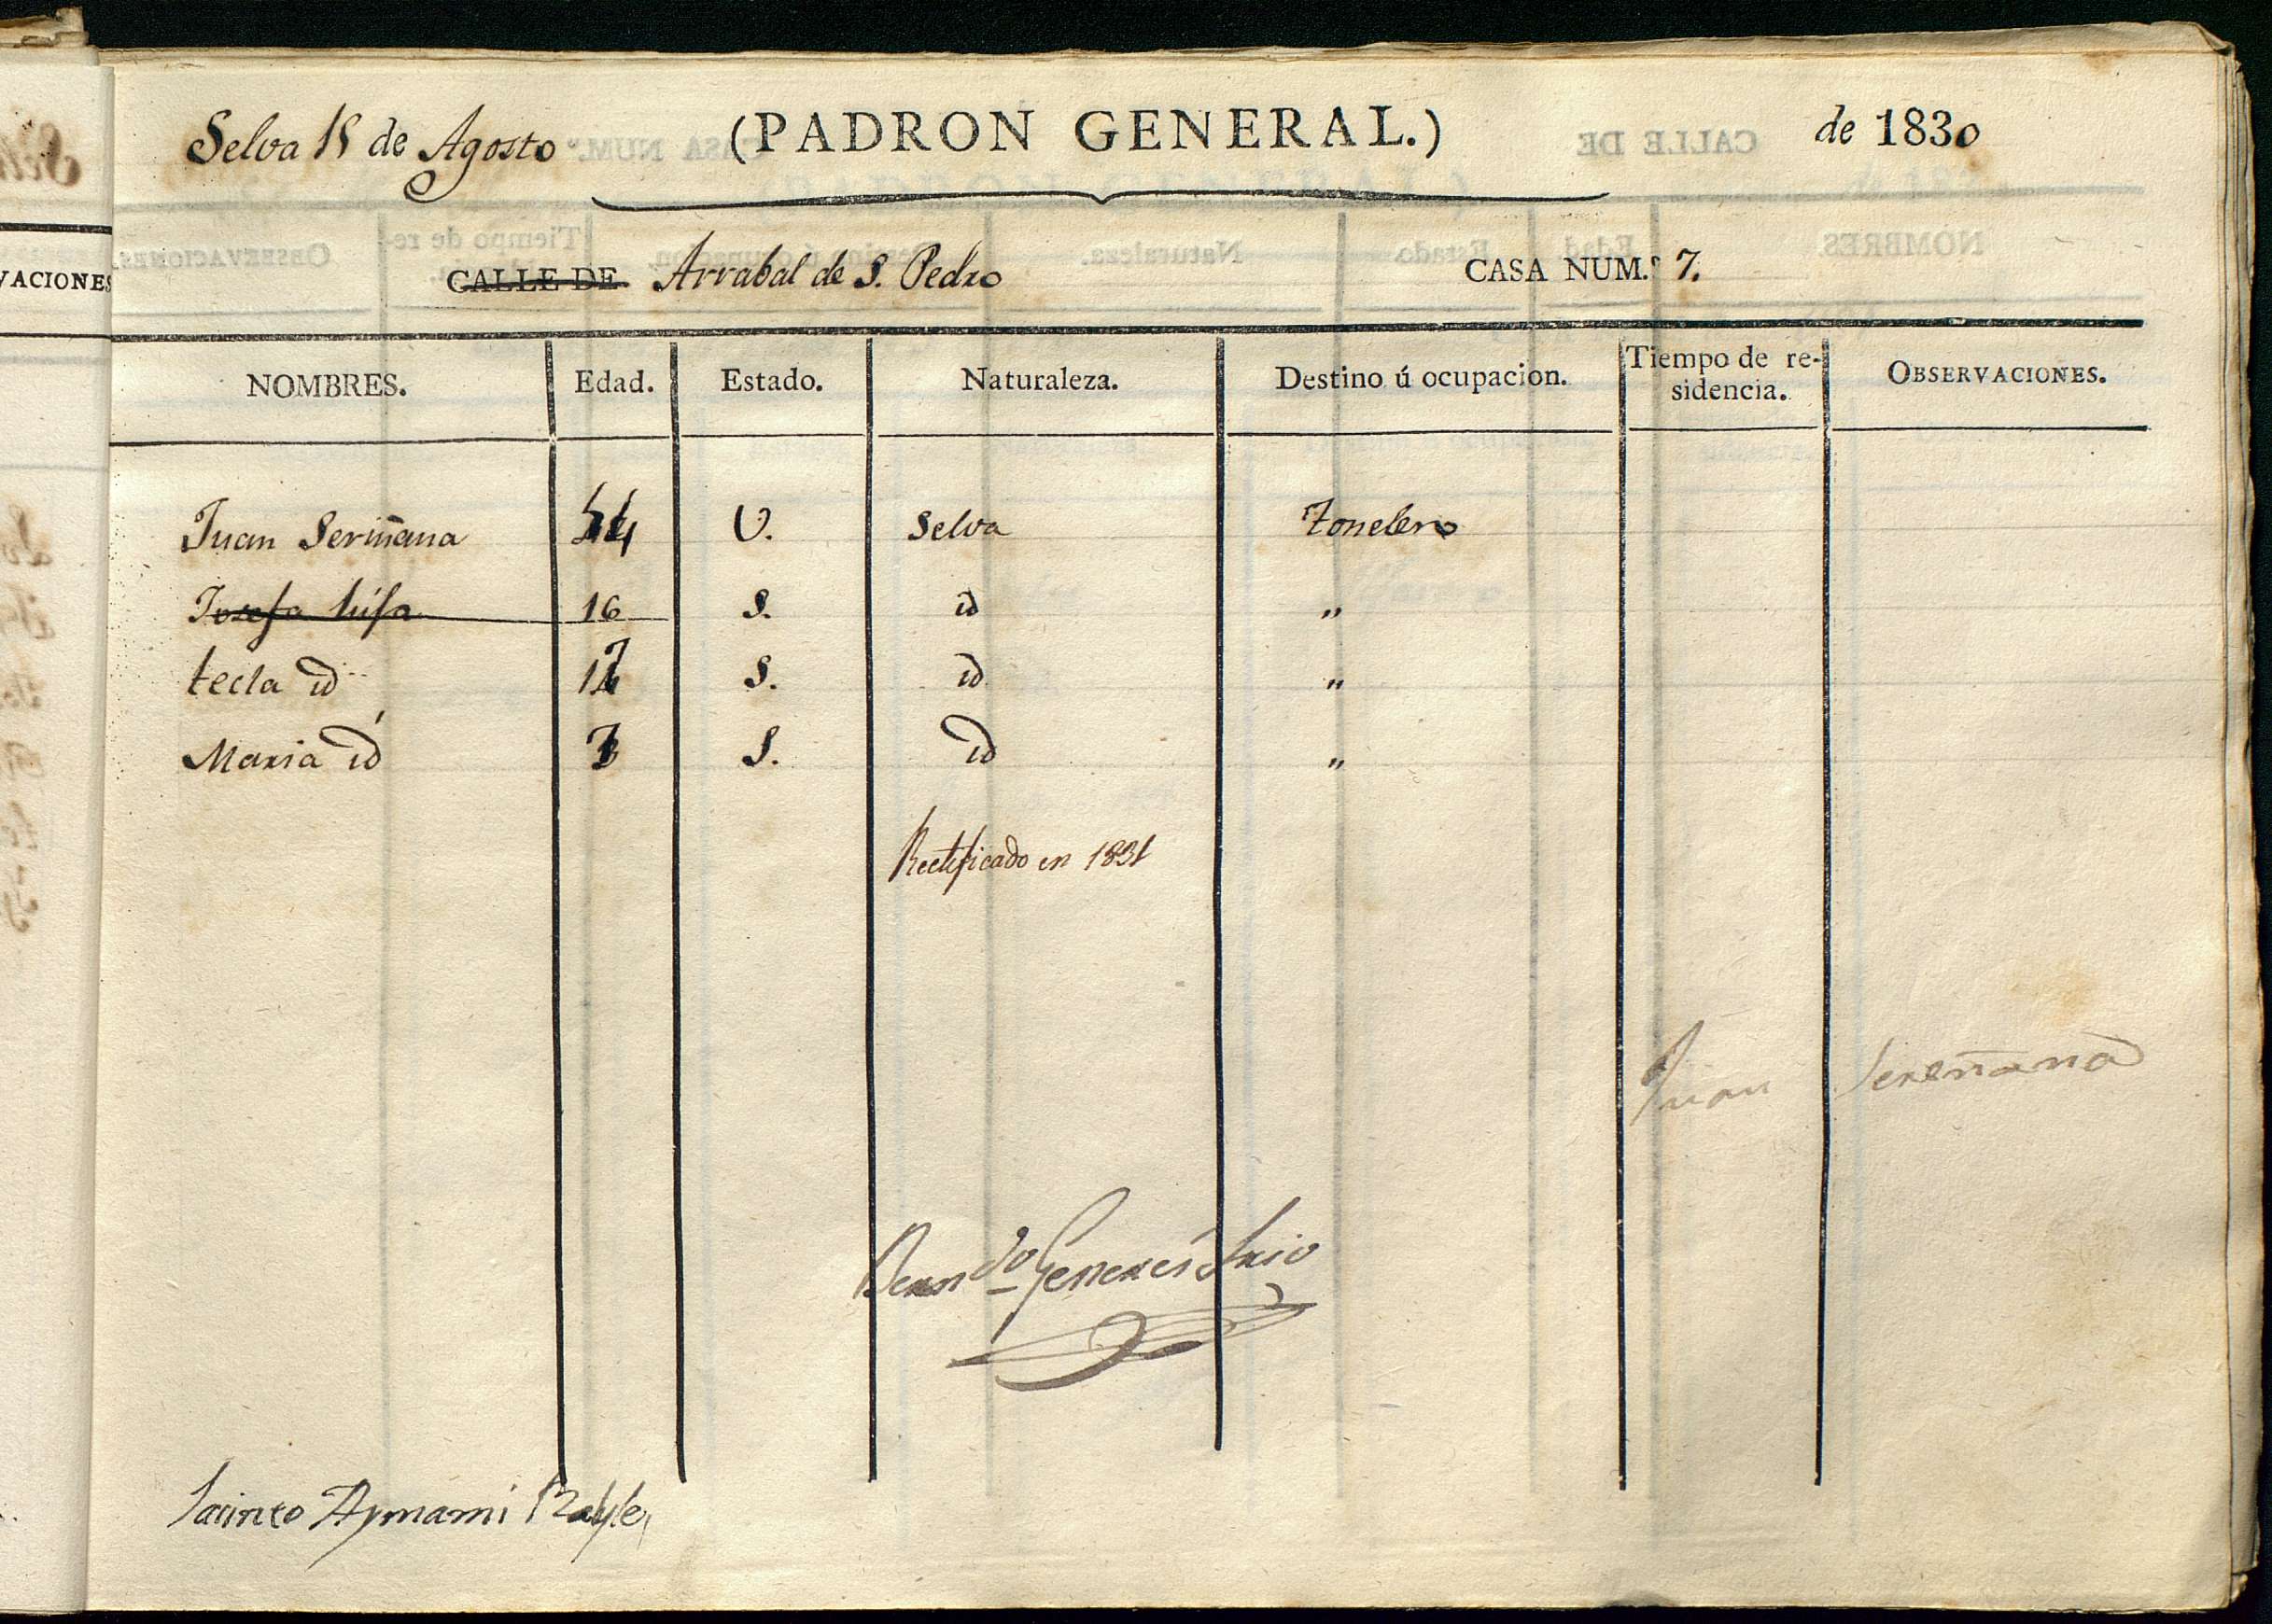 Selva 15 de Agosto (PADRON GENERAL.) de 1830
CALLE DE Arrabal de S. Pedro CASA NUM.º 7.
VACIONES
NOMBRES. Edad. Estado. Naturaleza. Destino ú ocupacion. Tiempo de re-
sidencia. OBSERVACIONES.
Juan Seriñana V. Selva Tonelero
Josefa hija 16 S. id "
tecla id S. id "
Maria id S. id "
Rectificado en 1831
Juan Sereñana
Bern.do Generés Srio
Jacinto Aymami Bayle